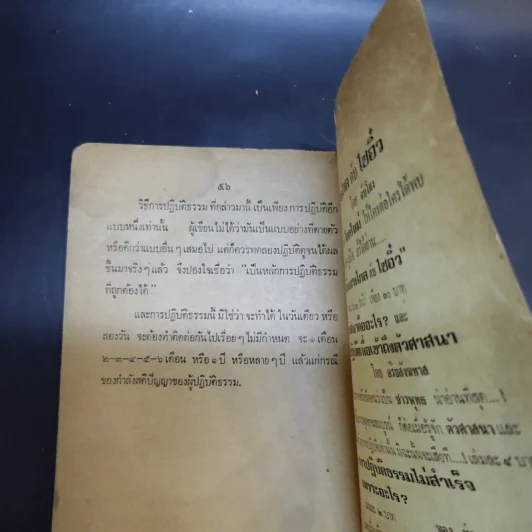 ๕๖
วิธีการปฏิบัติธรรม ที่กล่าวมานี้ เป็นเพียง การปฏิบัติอีก
แบบหนึ่งเท่านั้น ผู้เขียนไม่ได้ว่ามันเป็นแบบอย่างที่ตายตัว
หรือดีกว่าแบบอื่น ๆ เสมอไป แต่ก็ควรทดลองปฏิบัติดูจนได้ผล
ขึ้นมาจริง ๆ แล้ว จึงปลงใจเชื่อว่า "เป็นหลักการปฏิบัติธรรม
ที่ถูกต้องได้"
และการปฏิบัติธรรมนี้ มิใช่ว่า จะทำได้ ในวันเดียว หรือ
สองวัน จะต้องทำติดต่อกันไปเรื่อยๆ ไม่มีกำหนด จะ ๑ เดือน
๒-๓-๔-๕-๖ เดือน หรือ ๑ ปี หรือหลาย ๆ ปี แล้วแต่กรณี
ของกำลังสติปัญญาของผู้ปฏิบัติธรรม.
กับ ไซอิ๋ว
โดย
ให้ใครต่อใครได้พบ
กับ ไซอิ๋ว"
คืออะไร? และ
เข้าถึงตัวศาสนา
โดย
ชาวพุทธ น่าอ่านที่สุด....!
ก็ต่อเมื่อรู้จัก ตัวศาสนา และ
เล่มละ ๔ บาท
ปฏิบัติธรรมไม่สำเร็จ
เพราะอะไร?
๒ บาท